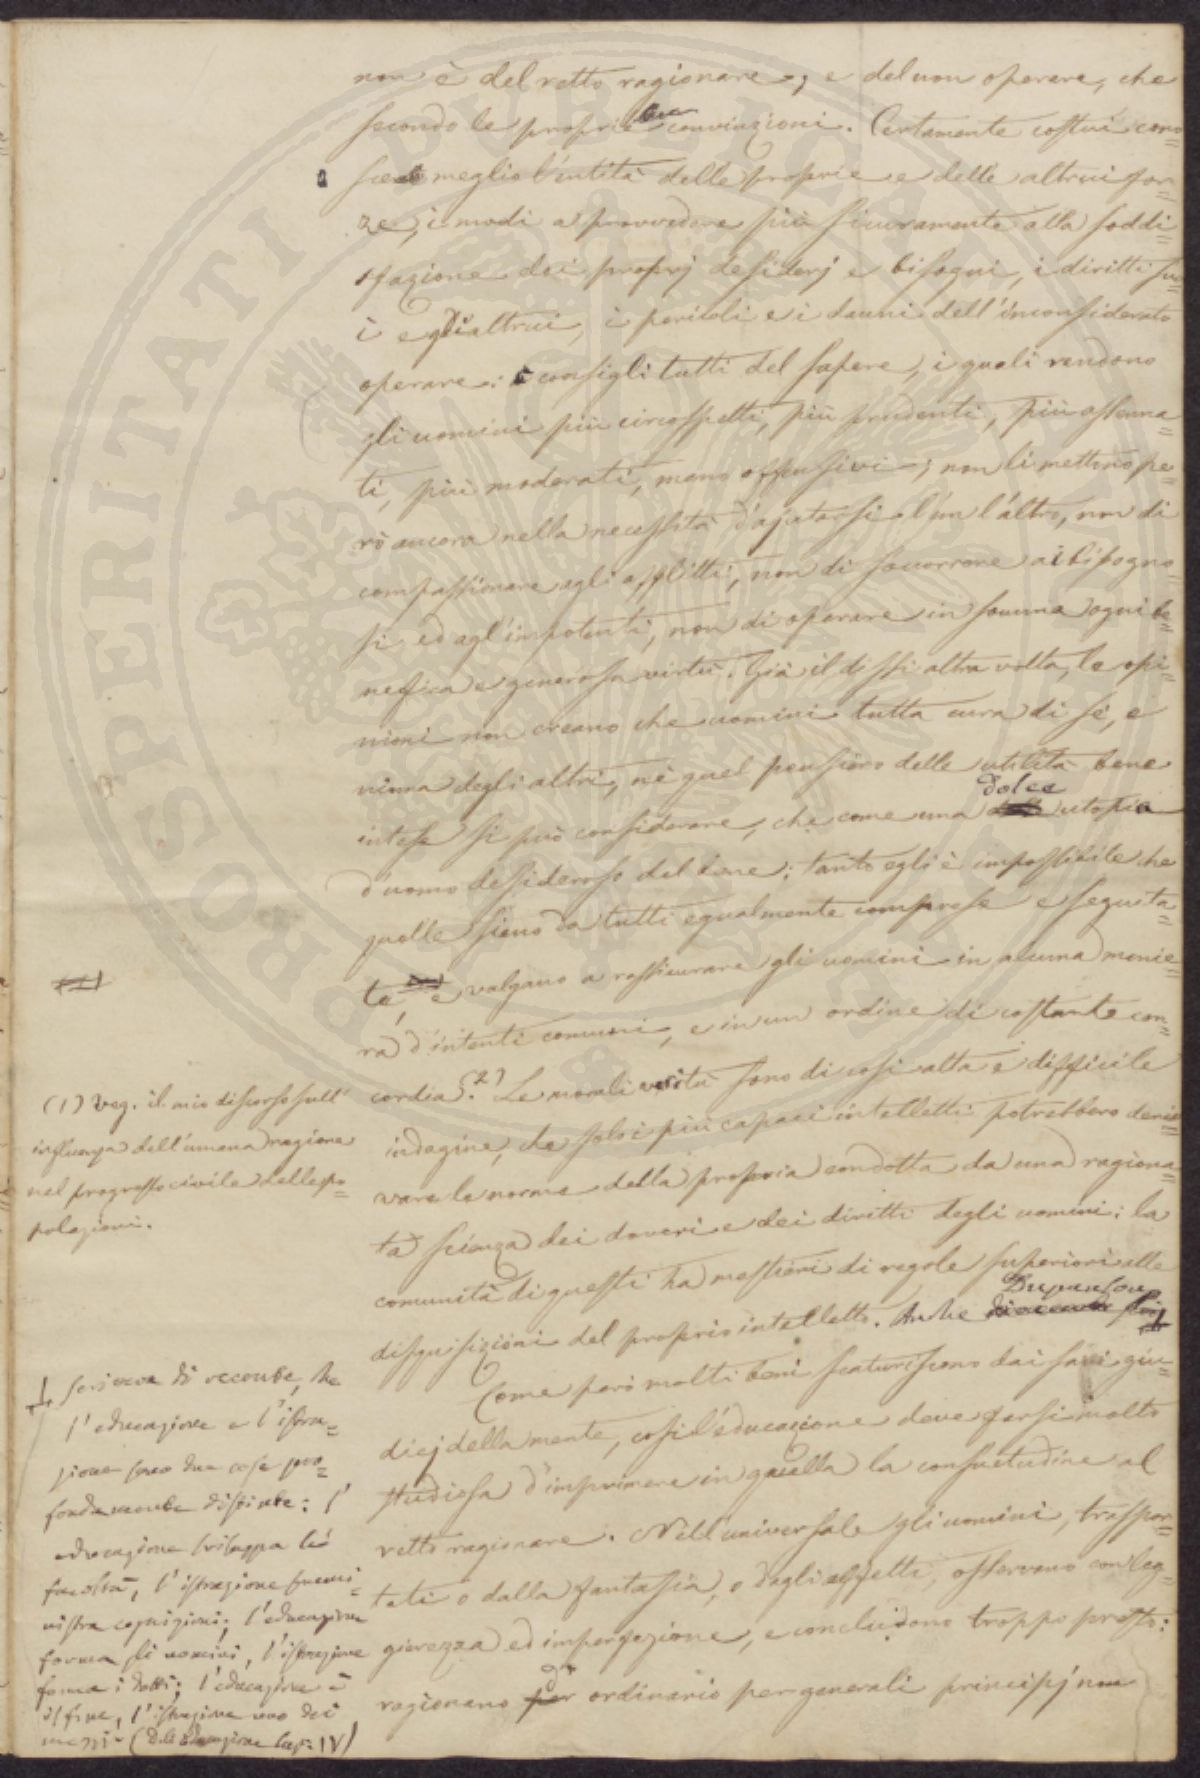 non è del retto ragionare, e del non operare, che
secondo le proprie convinzioni. Certamente costui cono=
sce meglio l'entità delle proprie e delle altrui for=
ze, i modi a provvedere più sicuramente alla soddi=
sfazione dei proprj desiderj e bisogni, i diritti suo=
i e gli altrui, i pericoli e i danni dell'inconsiderato
operare: consigli tutti del sapere, i quali rendono
gli uomini più circospetti, più prudenti, più assenna=
ti, più moderati, meno offensivi; non li mettono pe=
rò ancora nella necessità d'ajutarsi l'un l'altro, non di
compassionare agli afflitti, non di soccorrere ai bisogno=
si ed agl'impotenti, non di operare in somma ogni be=
nefica e generosa virtù. Già il dissi altra volta, le opi=
nioni non creano che uomini tutta cura di sé, e
niuna degli altri, nè quel pensiero delle utilità bene
intese si può considerare, che come una dolce utopia
d'uomo desideroso del bene: tanto egli è impossibile che
quelle sieno da tutti egualmente comprese e seguita=
te, e valgano a rassicurare gli uomini in alcuna manie=
ra d'intenti comuni, e in un ordine di costante con=
cordia.(2) Le morali verità sono di così alta e difficile
indagine, che solo i più capaci intelletti potrebbero deri=
vare le norme della propria condotta da una ragiona=
ta scienza dei doveri e dei diritti degli uomini: la
comunità di questi ha mestieri di regole superiori alle
disquisizioni del proprio intelletto. Anche Dupanloup
Come però molti beni scaturiscono dai savi giu=
dicj della mente, così l'educazione deve farsi molto
studiosa d'imprimere in quella la consuetudine al
retto ragionare. Nell'universale gli uomini, traspor=
tati o dalla fantasia, o dagli affetti, osservano con leg=
gierezza ed imperfezione, e concludono troppo presto:
ragionano d' ordinario per generali principj non
(1) Veg. il mio discorso sull'
influenza dell'umana ragione
nel progresso civile delle po=
polazioni.
+ scriveva di recente, che
l'educazione e l'istru=
zione sono due cose pro=
fondamente distinte: l'
educazione sviluppa le
facoltà, l'istruzione summi=
nistra cognizioni; l'educazione
forma gli uomini, l'istruzione
forma i dotti; l'educazione è
il fine, l'istruzione uno dei
mezzi (Dell'Educazione Cap. IV)